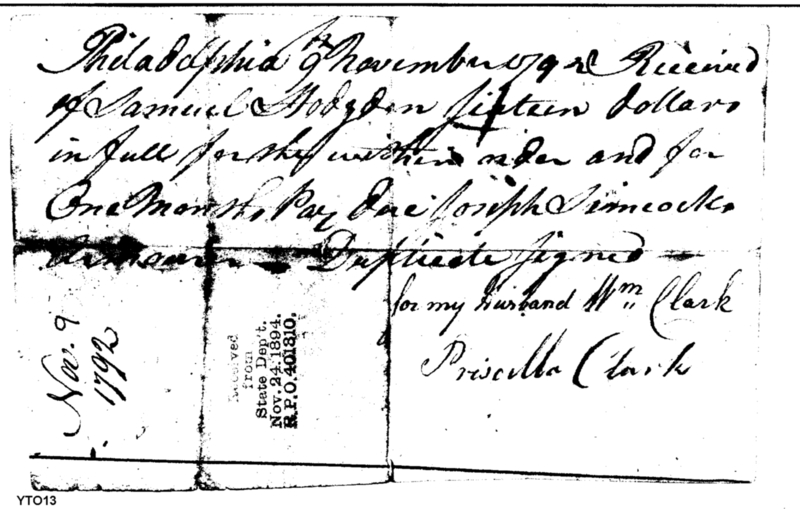 Philadelphia 9th November 1792 Received
of Samuel Hodgdon sixteen dollars
in full for the within order and for
One Months Pay due Joseph Simcocks
Armourer — Duplicate signed —
for my husband Wm Clark
Priscilla Clark
Nov. 9
1792
Received
from
State Dep't.
Nov. 24. 1894.
R.P.O. 401310.
YTO13